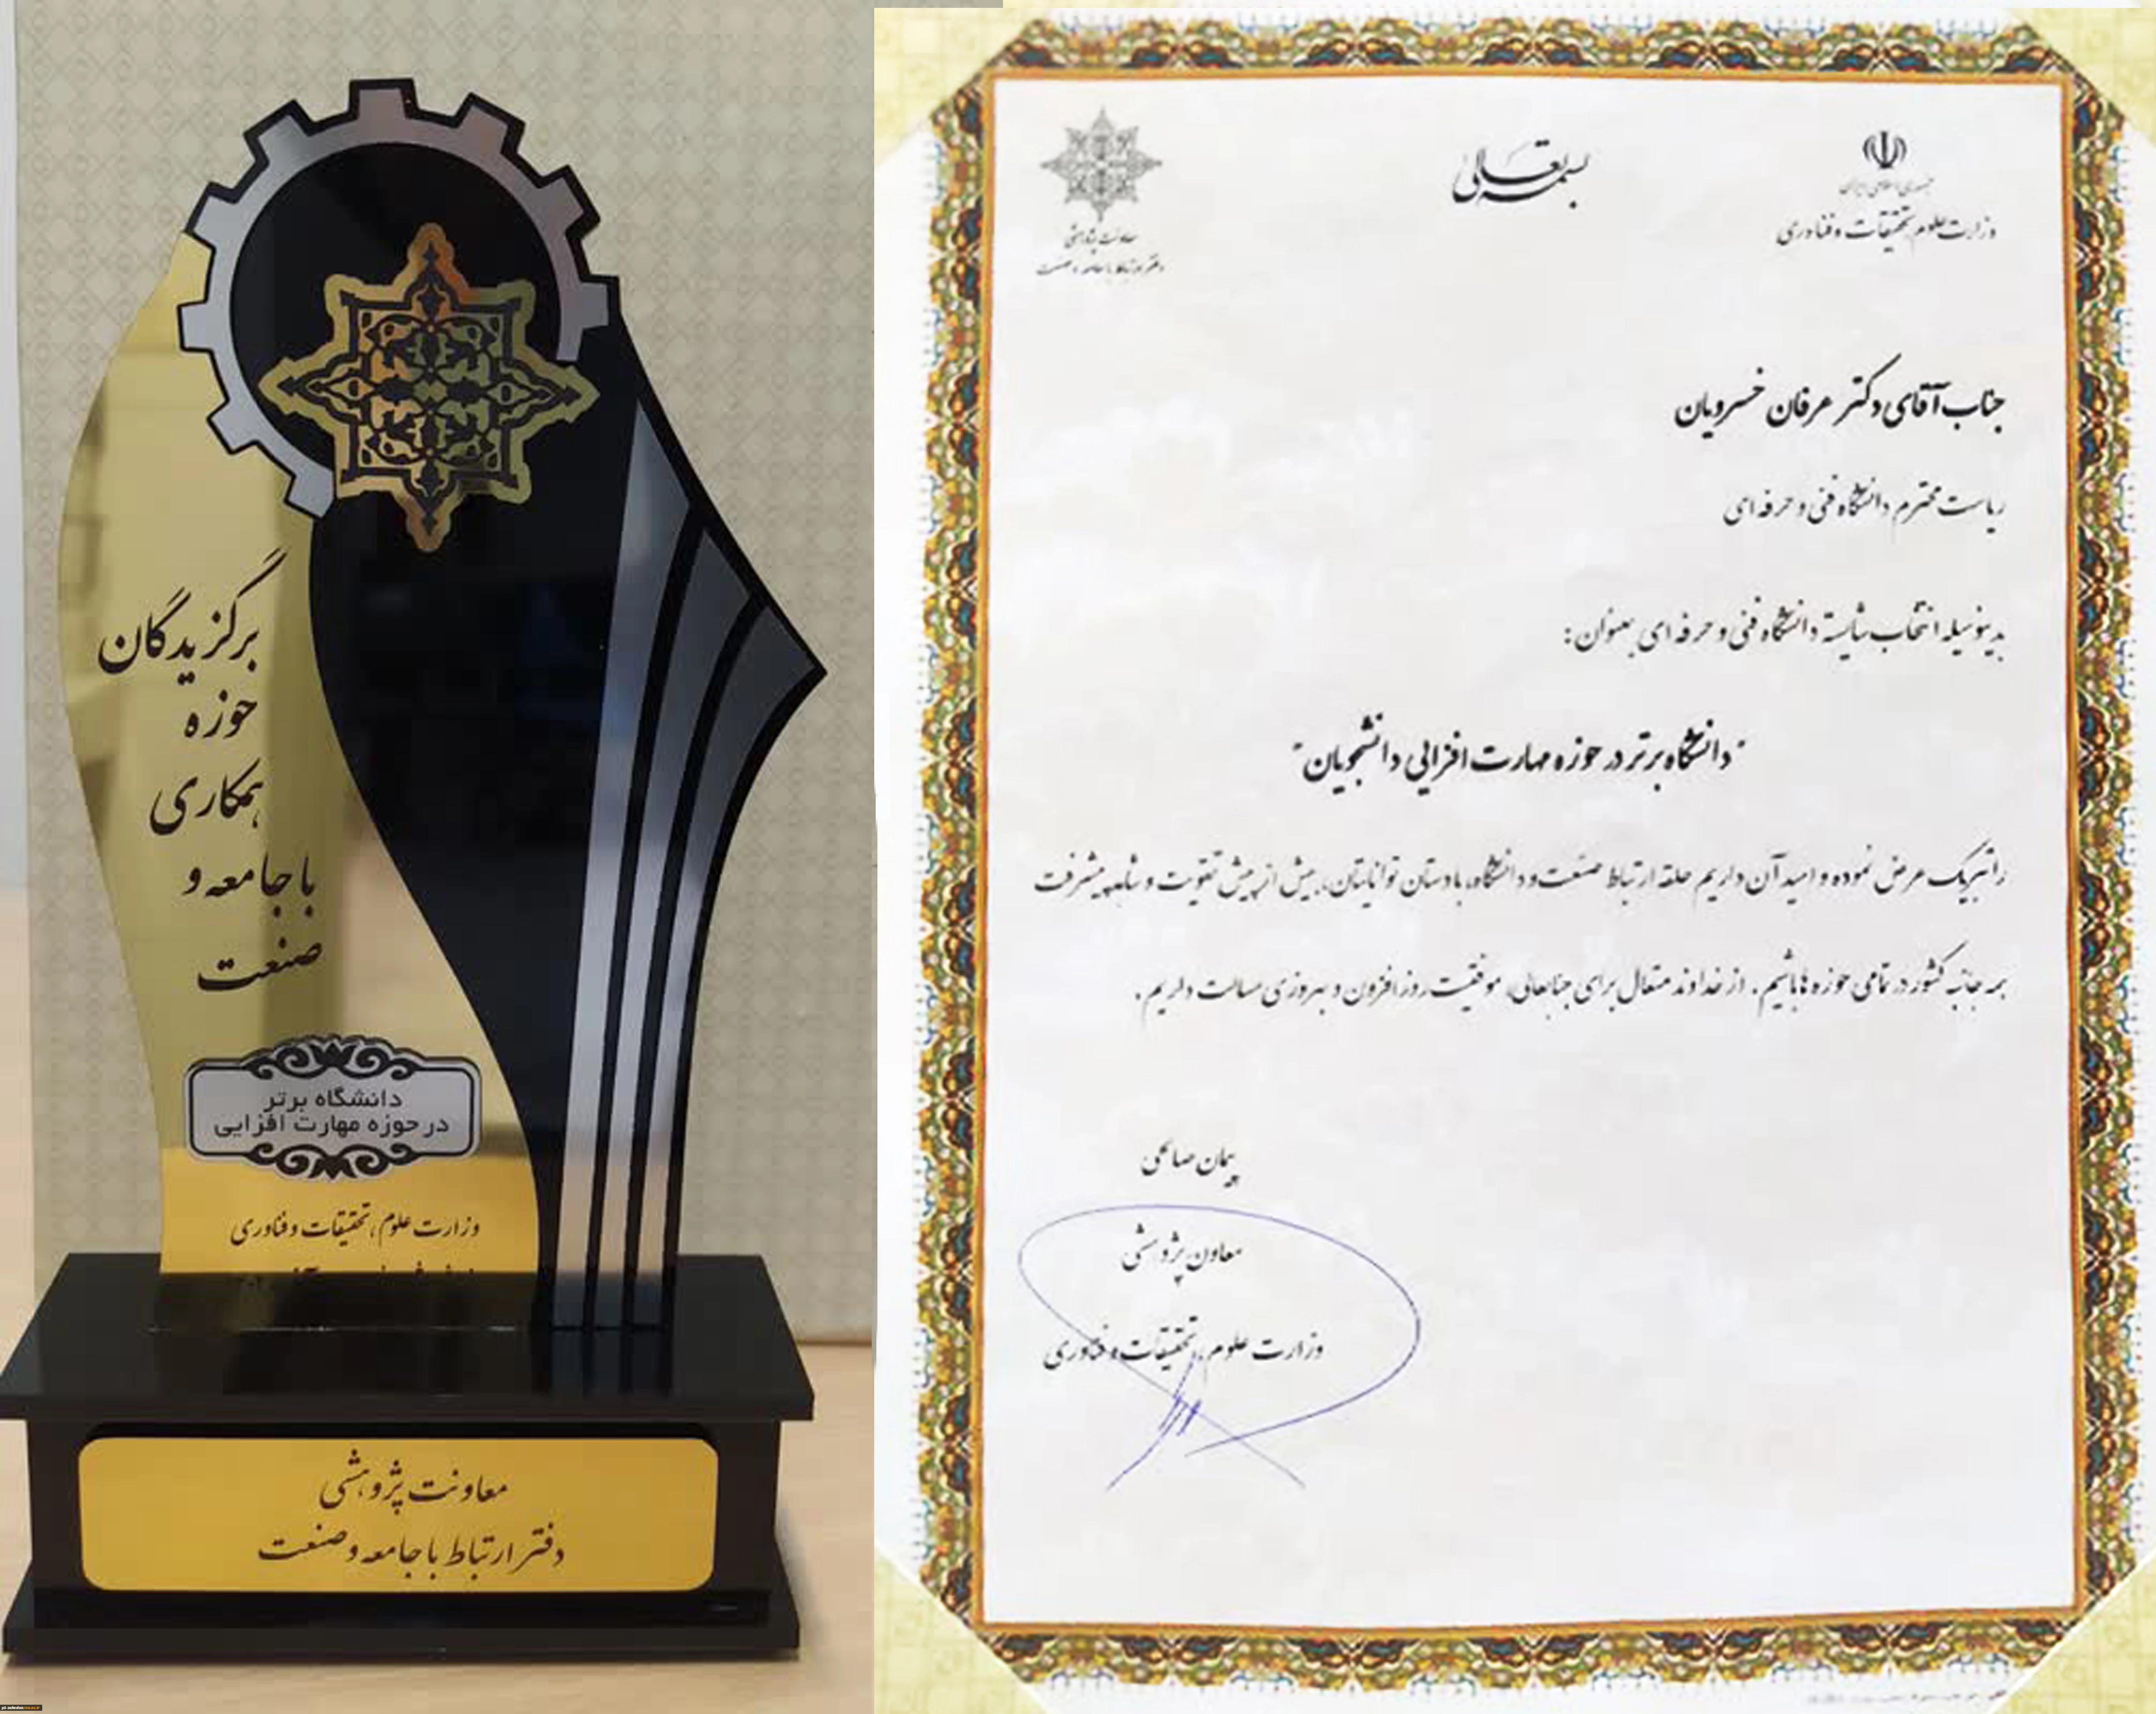 برگزیدگان
حوزه
همکاری
با جامعه و
صنعت
دانشگاه برتر
در حوزه مهارت افزایی
وزارت علوم، تحقیقات و فناوری
معاونت پژوهشی
دفتر ارتباط با جامعه و صنعت
بسمه تعالی
جمهوری اسلامی ایران
وزارت علوم، تحقیقات و فناوری
معاونت پژوهشی
دفتر ارتباط با جامعه و صنعت
جناب آقای دکتر عرفان خسرویان
ریاست محترم دانشگاه فنی و حرفه ای
بدینوسیله انتخاب شایسته دانشگاه فنی و حرفه ای بعنوان:
"دانشگاه برتر در حوزه مهارت افزایی دانشجویان"
را تبریک عرض نموده و امید آن داریم حلقه ارتباط صنعت و دانشگاه، با دستان توانایتان، بیش از پیش تقویت و شاهد پیشرفت
همه جانبه کشور در تمامی حوزه ها باشیم. از خداوند متعال برای جنابعالی، موفقیت روز افزون و بهروزی مسالت داریم.
پیمان صالحی
معاون پژوهشی
وزارت علوم، تحقیقات و فناوری